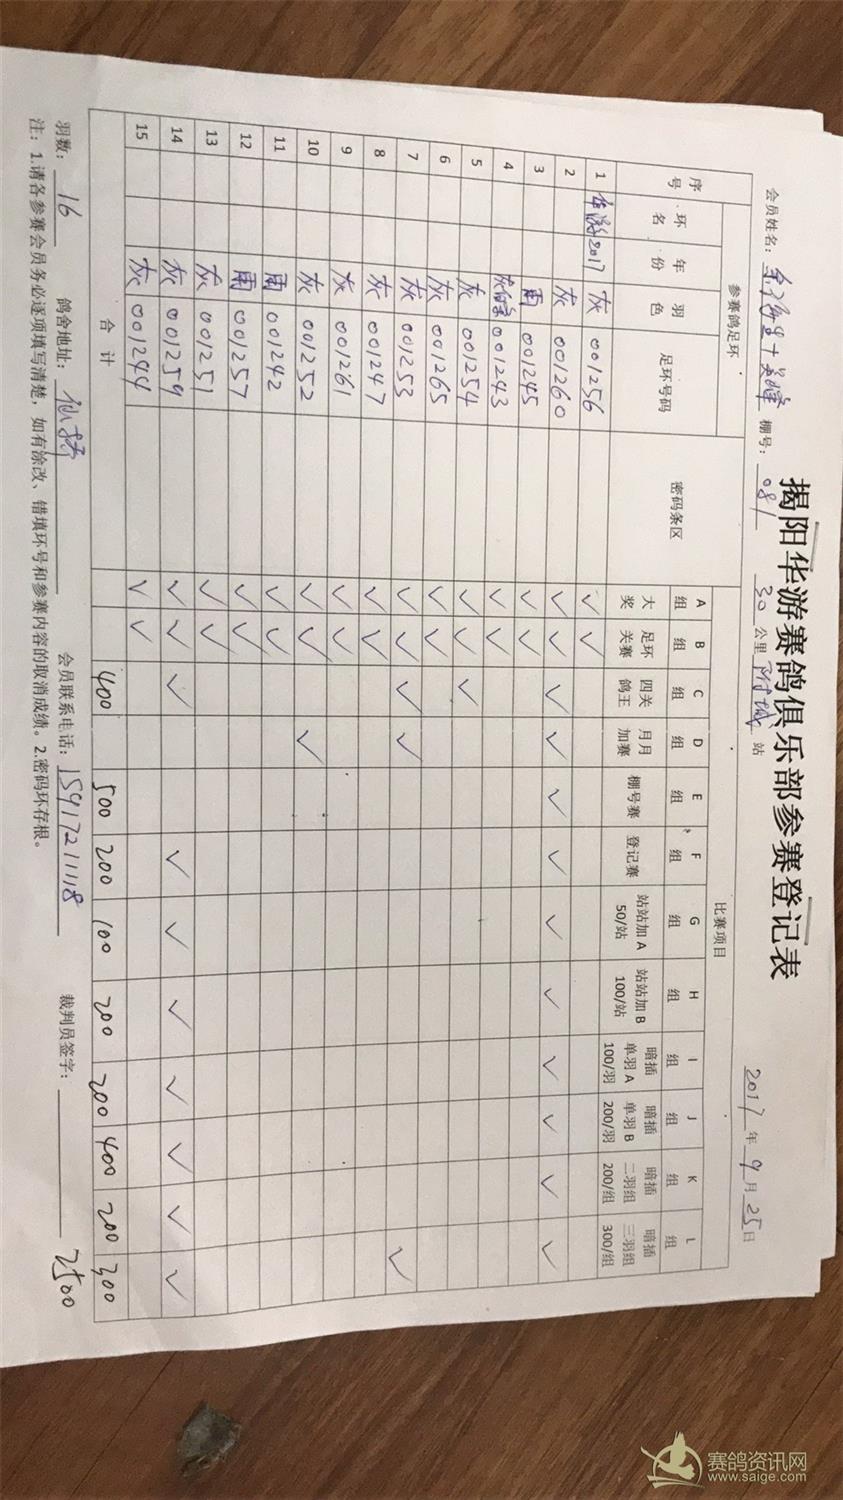 揭阳华游赛鸽俱乐部参赛登记表
会员姓名： 棚号：081 30公里 附城 站 2017年9月25日
序号 参赛鸽足环 密码条区 比赛项目
环名 年份 羽色 足环号码 A组 B组 C组 D组 E组 F组 G组 H组 I组 J组 K组 L组
大奖 足环关赛 四关鸽王 月月加赛 棚号赛 登记赛 站站加A 50/站 站站加B 100/站 暗插单羽A 100/羽 暗插单羽B 200/羽 暗插二羽组 200/组 暗插三羽组 300/组
1 华游 2017 灰 001256 ✓ ✓
2 灰 001260 ✓ ✓ ✓ ✓ ✓ ✓ ✓ ✓ ✓ ✓ ✓ ✓
3 雨 001245 ✓ ✓
4 001243 ✓ ✓
5 灰 001254 ✓ ✓ ✓
6 灰 001265 ✓ ✓
7 灰 001253 ✓ ✓ ✓ ✓ ✓
8 灰 001247 ✓ ✓
9 灰 001261 ✓ ✓
10 灰 001252 ✓ ✓ ✓
11 雨 001242 ✓ ✓
12 雨 001257 ✓ ✓
13 灰 001251 ✓ ✓
14 灰 001259 ✓ ✓ ✓ ✓ ✓ ✓ ✓ ✓ ✓ ✓
15 灰 001244 ✓ ✓
合计 400 500 200 100 200 200 400 200 300
2500
羽数：16 鸽舍地址：仙桥 会员联系电话：15917211118 裁判员签字：
注：1.请各参赛会员务必逐项填写清楚，如有涂改、错填环号和参赛内容的取消成绩。2.密码环存根。
赛鸽资讯网
www.saige.com